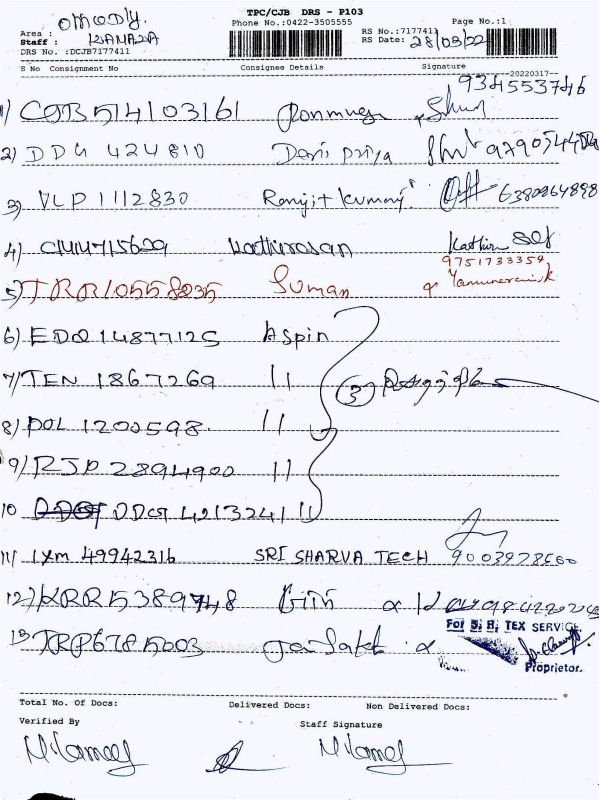 TPC/CJB DRS - P103
Phone No.:0422-3505555 Page No.:1
Area :
Staff : KANAGA RS No.:7177411
RS Date: 28/03/22
DRS No. :DCJB7177411
S No Consignment No Consignee Details Signature
--20220317--
934553746
1) CJB514103161
2) DDG 424810 Devi Priya
3) VLP 1112830 Ranjit Kumar 6380964898
4) Kathiravan Kathir
9751733354
5) TRR10558235 Suman
6) EDQ 14877125 Aspin
7) TEN 1867269 11
8) POL 1200598 11
9) RJP 2894900 11 3
10 DDG 4213241 11
11) IXM 49942316 SRI SHARVA TECH 9003978560
12) KRR15389748 Giri
13 TRP6785003 Jai Sakti
For S. R. TEX SERVICE
Proprietor.
Total No. Of Docs: Delivered Docs: Non Delivered Docs:
Verified By Staff Signature